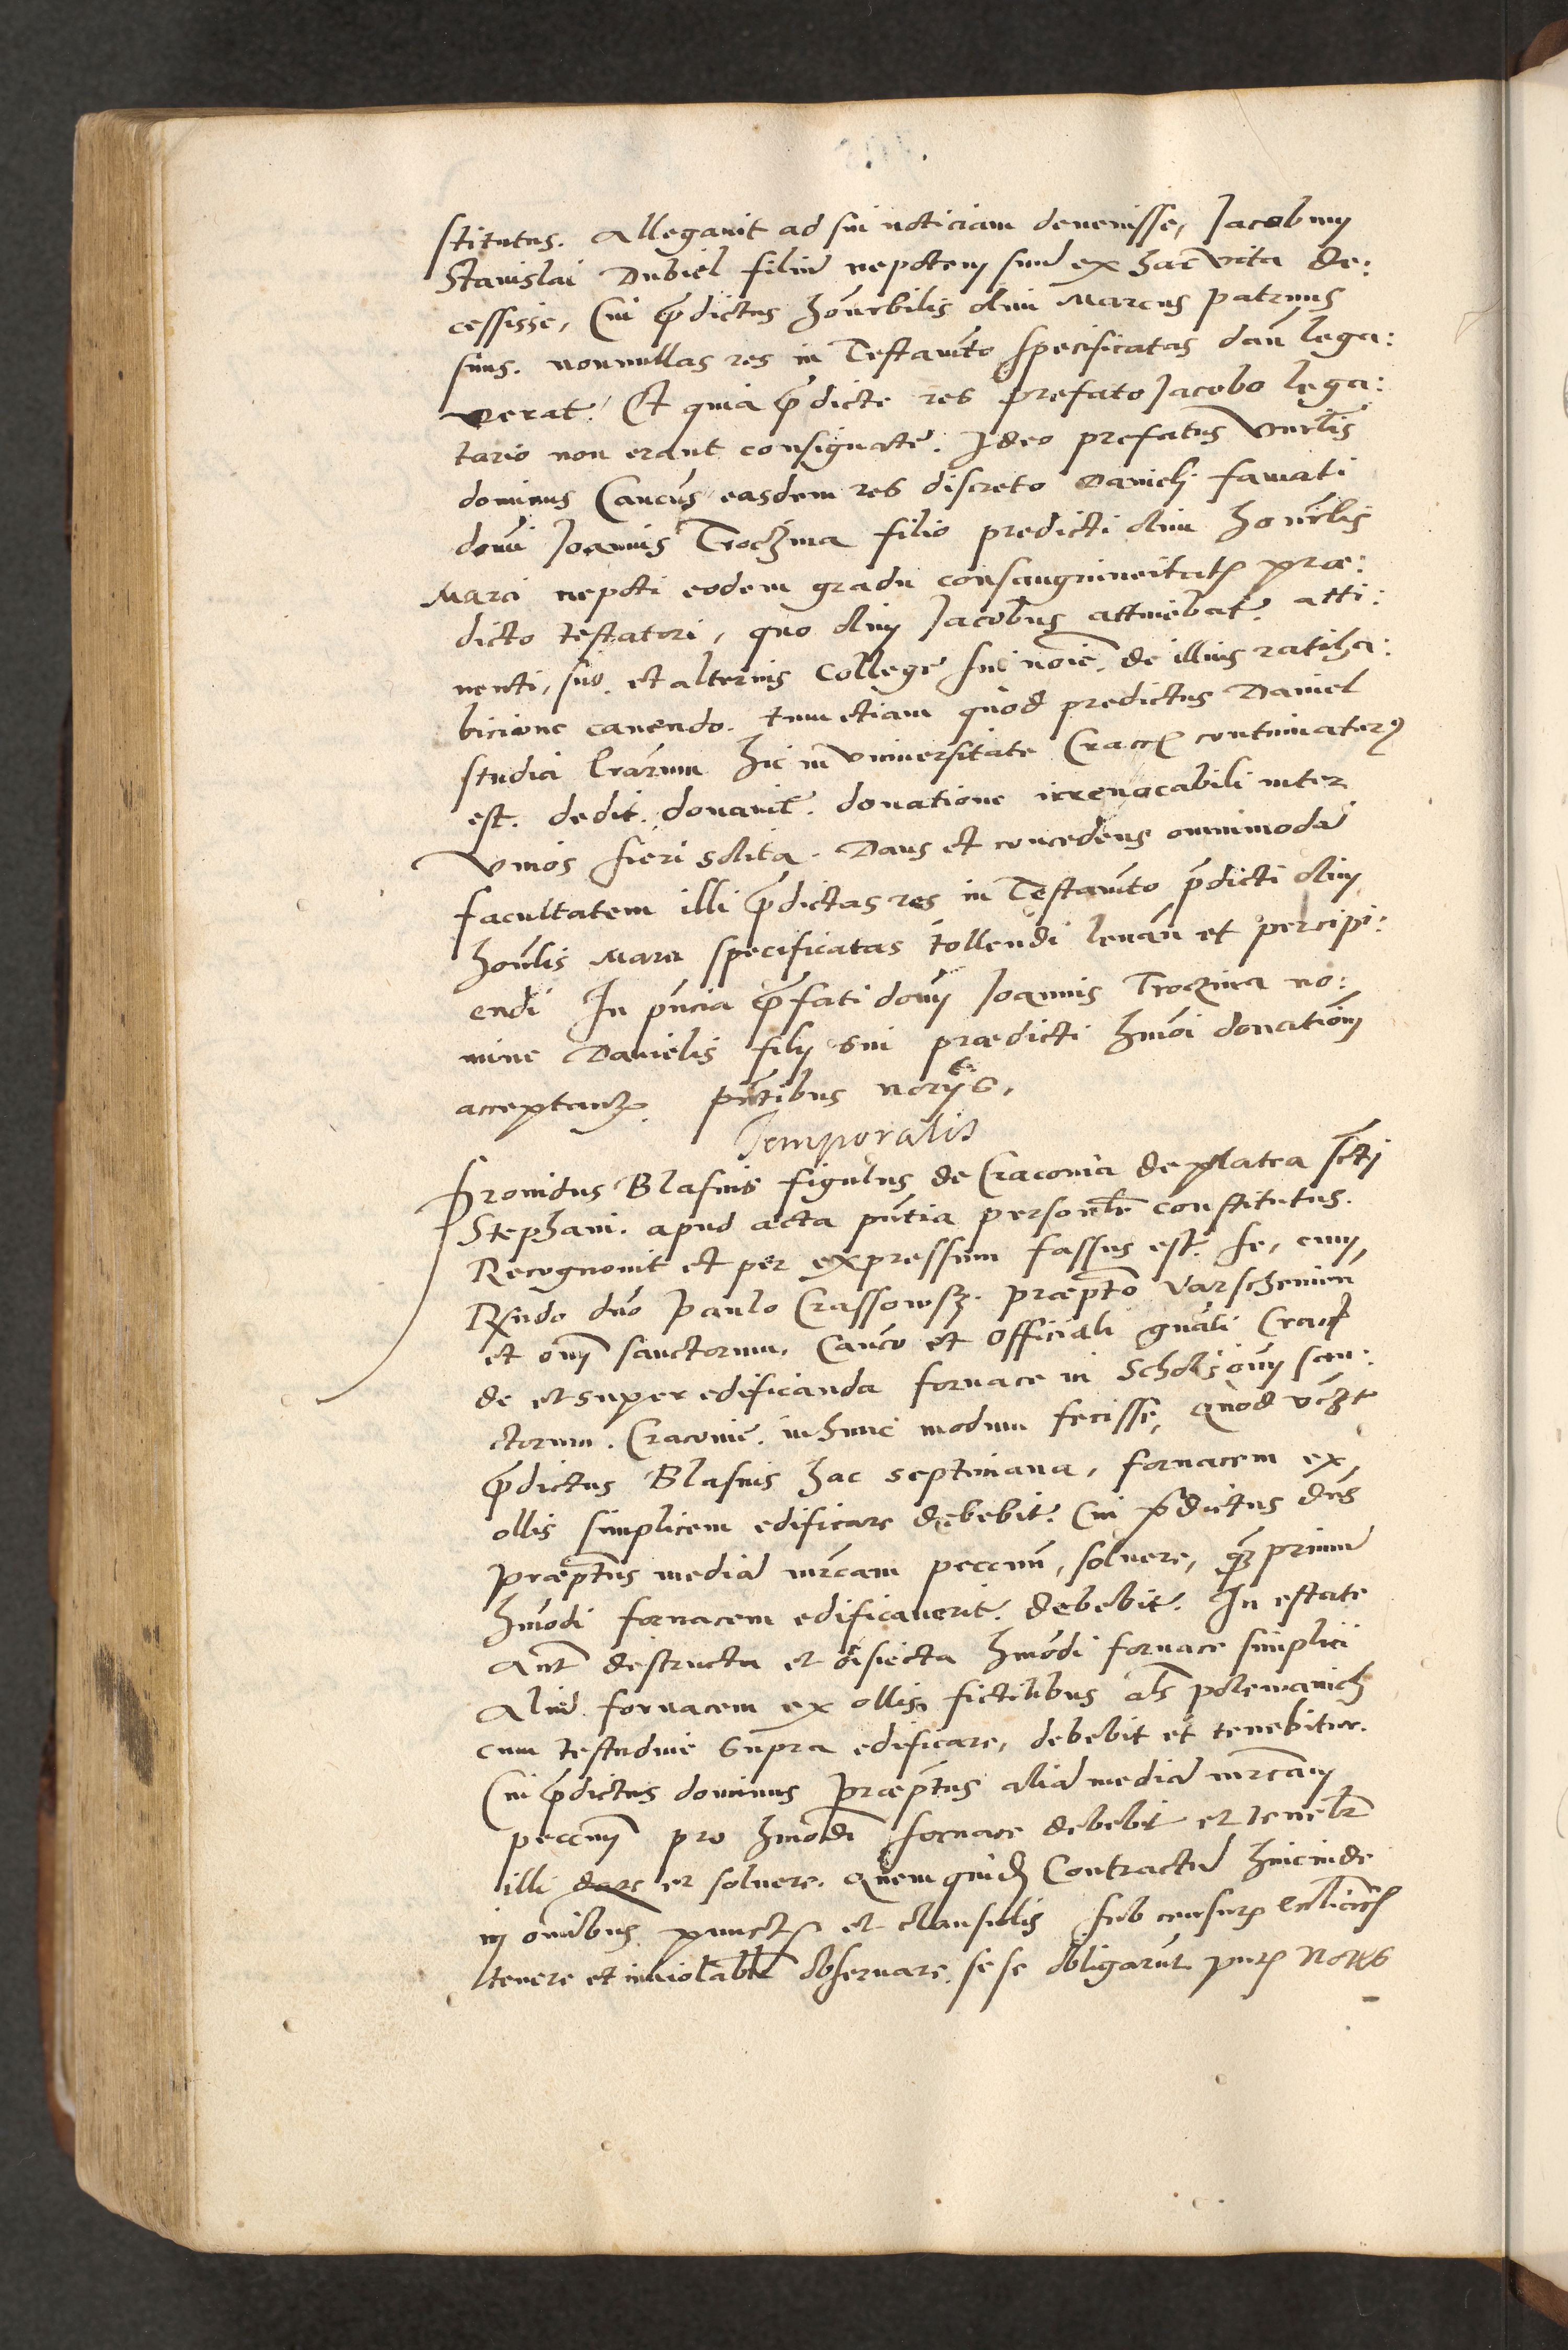 stitutus. Allegavit ad sui noticiam devenisse, Jacobum
Stanislai Dubiel filiū nepotem suū ex hac vita de:
cessisse, Cui p̄dictus honorbilis olim Marcus patruus
suus. nonnullas res in Testamēto specificatas dan̄ lega:
verat. Et quia p̄dicte res prefato Jacobo lega:
tario non erant consignate. Ideo prefatus Vnrlis
dominus Cancus easdem res discreto Danieli famati
domi Joannis Troczina filio predicti olim honrlis
Marci nepoti eodem gradu consanguineitatis præ:
dicto testatori, quo olim Jacobus attinebat. atti:
nenti, suo. et alterius College sui noīe. de illius ratiha:
bicione cavendo. tum etiam quod predictus Daniel
studia lrarum hic in vniversitate Cracoū continaturus
est. dedit. donavit. donatione irrevocabili inter
vivos fieri solita. Dans et concedens omnimodā
facultatem illi p̄dictas res in Testamēto p̄dicti olim
honrlis Marci specificatas tollendi levan̄ et percipi:
endi In p̄ncia p̄fati domi Joannis Troczina no:
mine Danielis filij sui prædicti hmōi donationem
acceptantis. p̄ntibus norijs.
Temporalis
Providus Blasius figulus de Cracovia de platea sc̄ti
Stephani. apud acta p̄ntia personlr constitutus.
Recognovit et per expressum fassus est. se, cum,
Rn̄do dn̄o Paulo Crassowsz. præpto Varschevien̄
et om̄ sanctorum. Canco et Officiali gn̄ali Cracoū
de et super edificanda fornace in Scholis om̄ san:
ctorum. Cracovie. in hunc modum fecisse, Quod vczt
p̄dictus Blasius hac septimana, fornacem ex,
ollis simplicem edificare debebit. Cui p̄dictus dn̄s
præptus mediā mrcam peccun̄, solvere, q̄ primū
hmōdi fornacem edificaverit. debebit. In estate
Aut̄ destructa et disiecta hmōdi fornace simplici
Aliā fornacem ex ollis fictilibus als polewanich
cum testudine supra edificare, debebit et tenebitur.
Cui p̄dictus dominus præptus aliā mediā mrcam
peccun̄ pro hmōdi fornace debebit et tenebr̄
illi dare et solvere. Quem quidē Contractū hincinde
in omībus punctis et clausulis sub censuris ecclīcis
tenere et inviolablr observare. sese obligarūt. pn̄tis Norijs